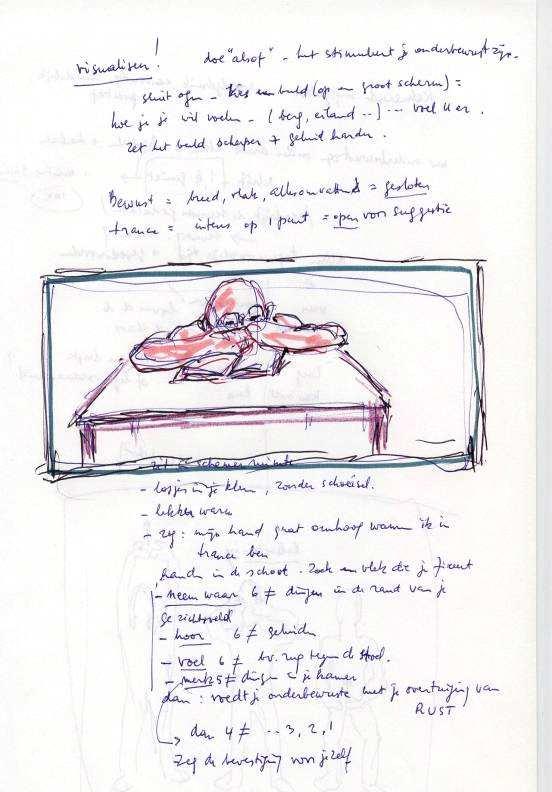 visualiseer! doe "alsof" - het stimuleert je onderbewust zijn.
sluit ogen - kies een beeld (op een groot scherm) =
hoe je je wil voelen - (berg, eiland ..) ... voel U er.
zet het beeld scherper + geluid harder.
Bewust = breed, vlak, allesomvattend = gesloten
trance = intens op 1 punt = open voor suggestie
- zit in schemer ruimte
- losjes in je kleren, zonder schoeisel.
- lekker warm
- zeg: mijn hand gaat omhoog wanneer ik in
trance ben
handen in de schoot. Zoek een vlek die je fixeert
- neem waar 6 ≠ dingen in de rand van je
gezichtsveld
- hoor 6 ≠ geluiden
- voel 6 ≠ bv. rug tegen de stoel.
- merk 5 ≠ dingen in je kamer
dan: voedt je onderbewuste met je overtuiging van
RUST
dan 4 ≠ ... 3, 2, 1
Zeg de bevestiging voor jezelf